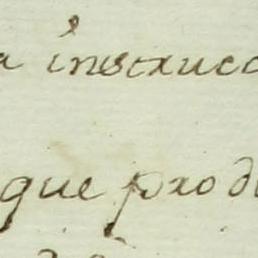 a instrucc
que prod